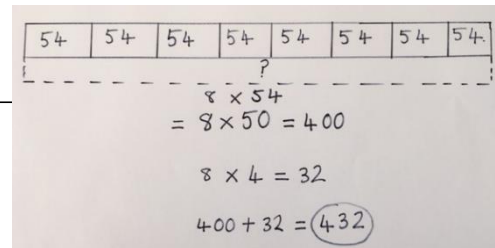 54 54 54 54 54 54 54 54.
?
8 × 54
= 8 × 50 = 400
8 × 4 = 32
400 + 32 = 432